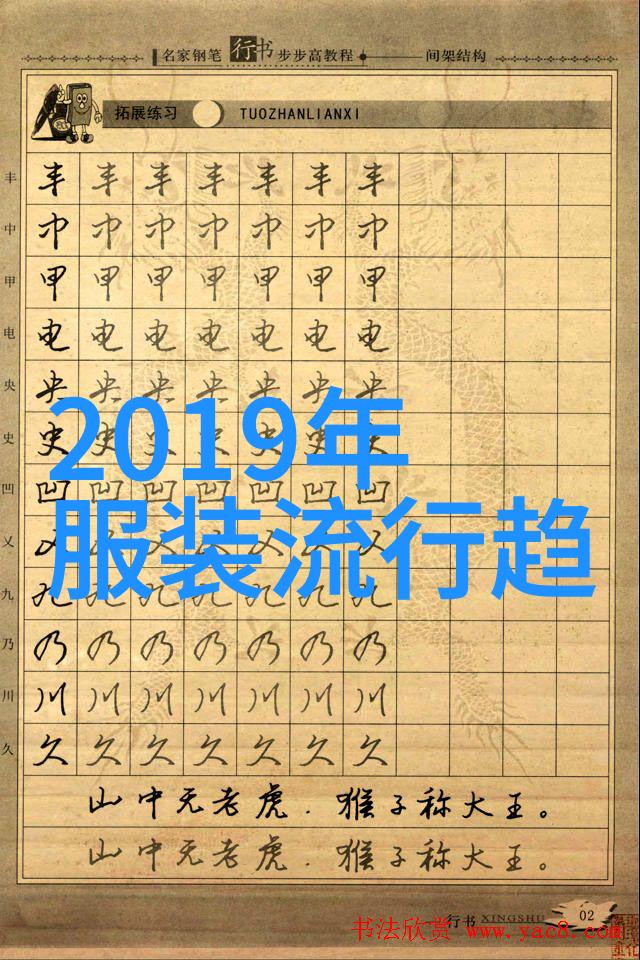 名家钢笔行书步步高教程 间架结构
拓展练习 TUOZHANLIANXI
丰 丰 丰 丰 丰 丰 丰 丰
中 中 中 中 中 中 中 中
甲 甲 甲 甲 甲 甲 甲 甲
电 电 电 电 电 电 电 电
央 央 央 央 央 央 央 央
2019年
史 史 史 史 史 史 史 史
凹 凹 凹 凹 凹 凹 凹 凹
服装流行趋
乂 乂 乂 乂 乂 乂 乂 乂
九 九 九 九 九 九 九 九
乃 乃 乃 乃 乃 乃 乃 乃
川 川 川 川 川 川 川 川
久 久 久 久 久 久 久 久
山中无老虎．猴子称大王。
山中无老虎．猴子称大王。
行书 XINGSHU 02
书法欣赏 www.yac8.com